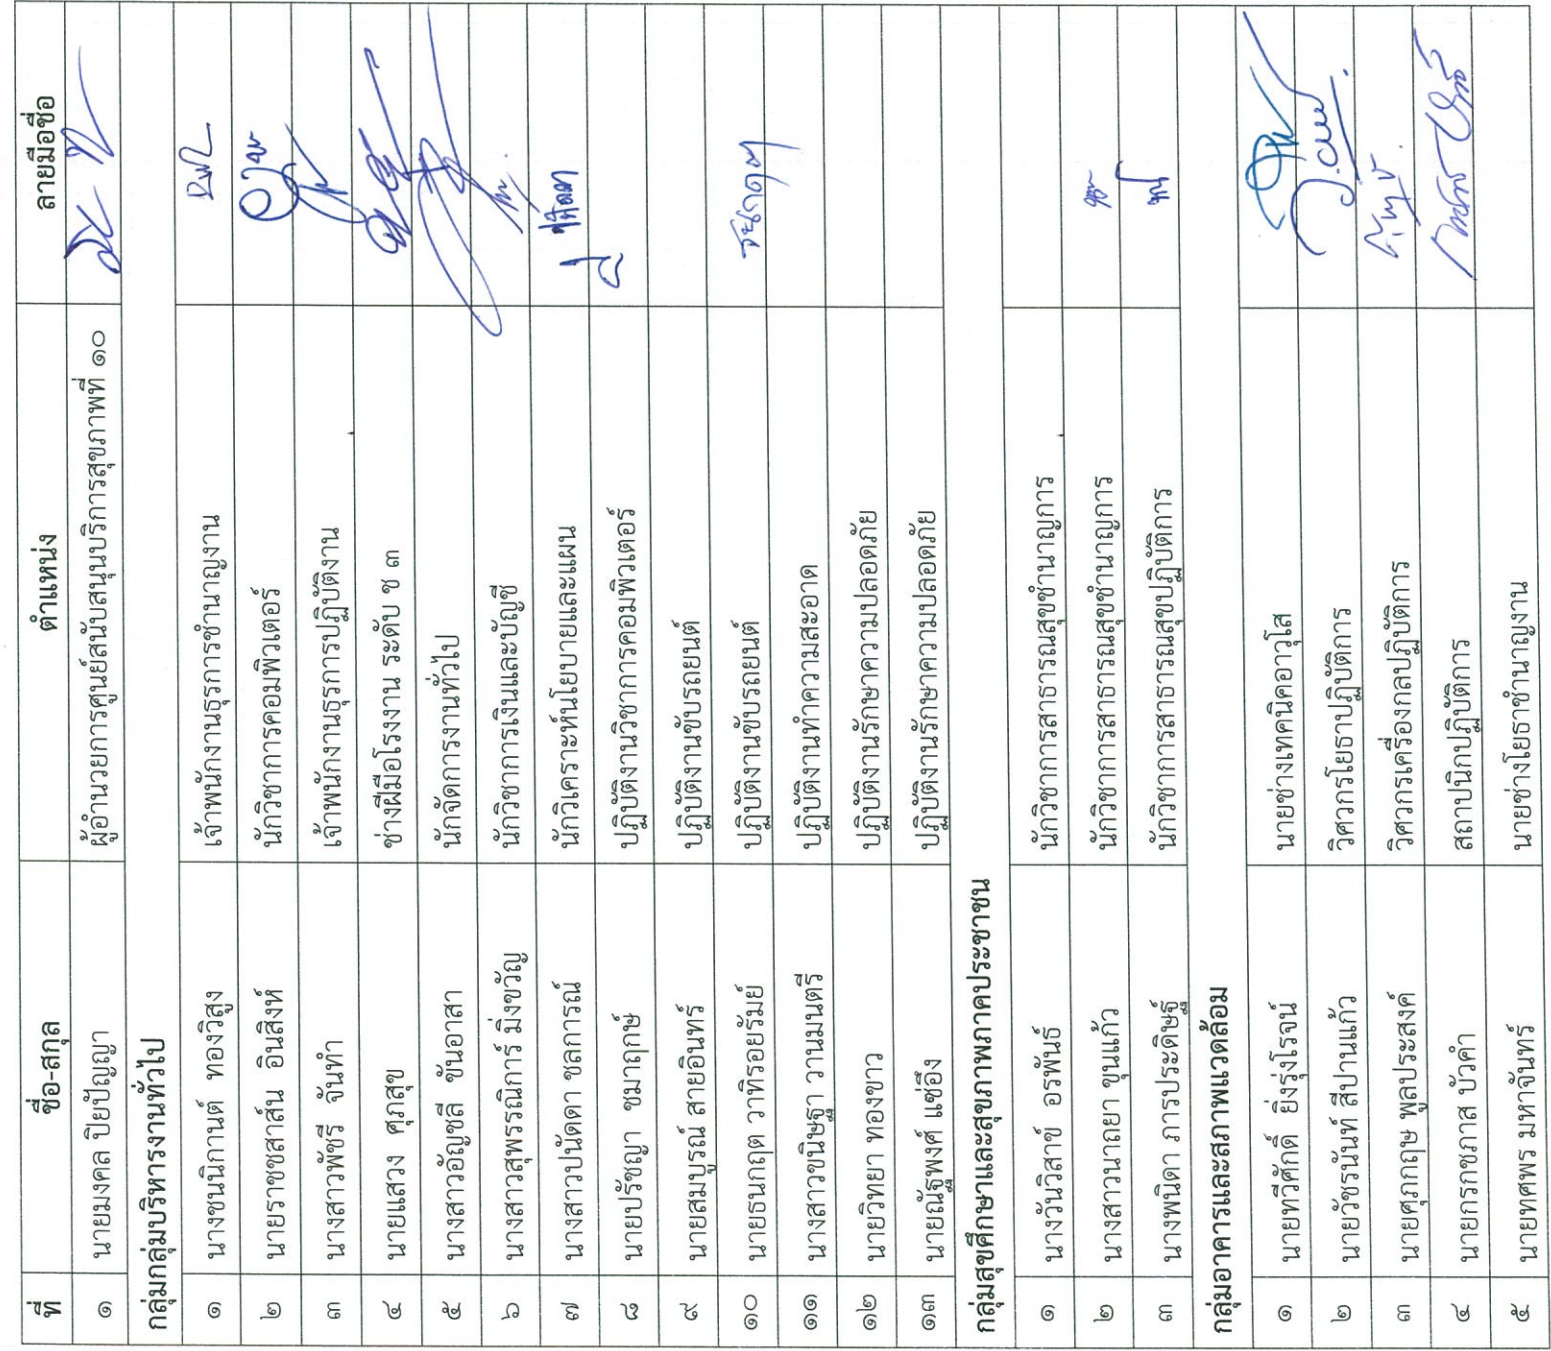 ที่ ชื่อ-สกุล ตำแหน่ง ลายมือชื่อ
๑ นายมงคล ปิยปัญญา ผู้อำนวยการศูนย์สนับสนุนบริการสุขภาพที่ ๑๐
กลุ่มกลุ่มบริหารงานทั่วไป
๑ นางชนนิกานต์ ทองวิสูง เจ้าพนักงานธุรการชำนาญงาน
๒ นายราชชสาส์น อินสิงห์ นักวิชาการคอมพิวเตอร์
๓ นางสาวพัชรี จันทำ เจ้าพนักงานธุรการปฏิบัติงาน
๔ นายแสวง ศุภสุข ช่างฝีมือโรงงาน ระดับ ช ๓
๕ นางสาวอัญชลี ขันอาสา นักจัดการงานทั่วไป
๖ นางสาวสุพรรณิการ์ มิ่งขวัญ นักวิชาการเงินและบัญชี
๗ นางสาวปนัดดา ชลการณ์ นักวิเคราะห์นโยบายและแผน
๘ นายปรัชญา ชมาฤกษ์ ปฏิบัติงานวิชาการคอมพิวเตอร์
๙ นายสมบูรณ์ สายอินทร์ ปฏิบัติงานขับรถยนต์
๑๐ นายธนกฤต วาทิรอยรัมย์ ปฏิบัติงานขับรถยนต์
๑๑ นางสาวขนิษฐา วานมนตรี ปฏิบัติงานทำความสะอาด
๑๒ นายวิทยา ทองขาว ปฏิบัติงานรักษาความปลอดภัย
๑๓ นายณัฐพงศ์ แซ่อึง ปฏิบัติงานรักษาความปลอดภัย
กลุ่มสุขศึกษาและสุขภาพภาคประชาชน
๑ นางวันวิสาข์ อรพันธ์ นักวิชาการสาธารณสุขชำนาญการ
๒ นางสาวนาถยา ขุนแก้ว นักวิชาการสาธารณสุขชำนาญการ
๓ นางพนิดา การประดิษฐ์ นักวิชาการสาธารณสุขปฏิบัติการ
กลุ่มอาคารและสภาพแวดล้อม
๑ นายทวีศักดิ์ ยิ่งรุ่งโรจน์ นายช่างเทคนิคอาวุโส
๒ นายวัชรนันท์ สีปานแก้ว วิศวกรโยธาปฏิบัติการ
๓ นายศุภกฤษ พูลประสงค์ วิศวกรเครื่องกลปฏิบัติการ
๔ นายกรกชภาส บัวคำ สถาปนิกปฏิบัติการ
๕ นายทศพร มหาจันทร์ นายช่างโยธาชำนาญงาน